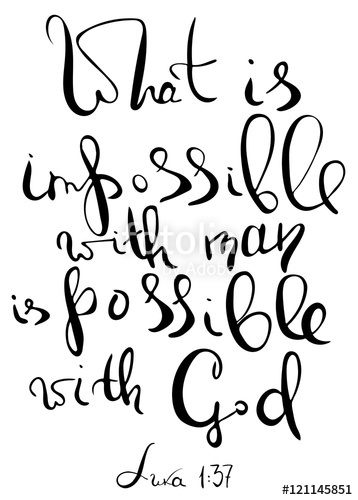 What is
impossible
with man
is possible
with God
Luka 1:37
fotolia
by Adobe
#121145851